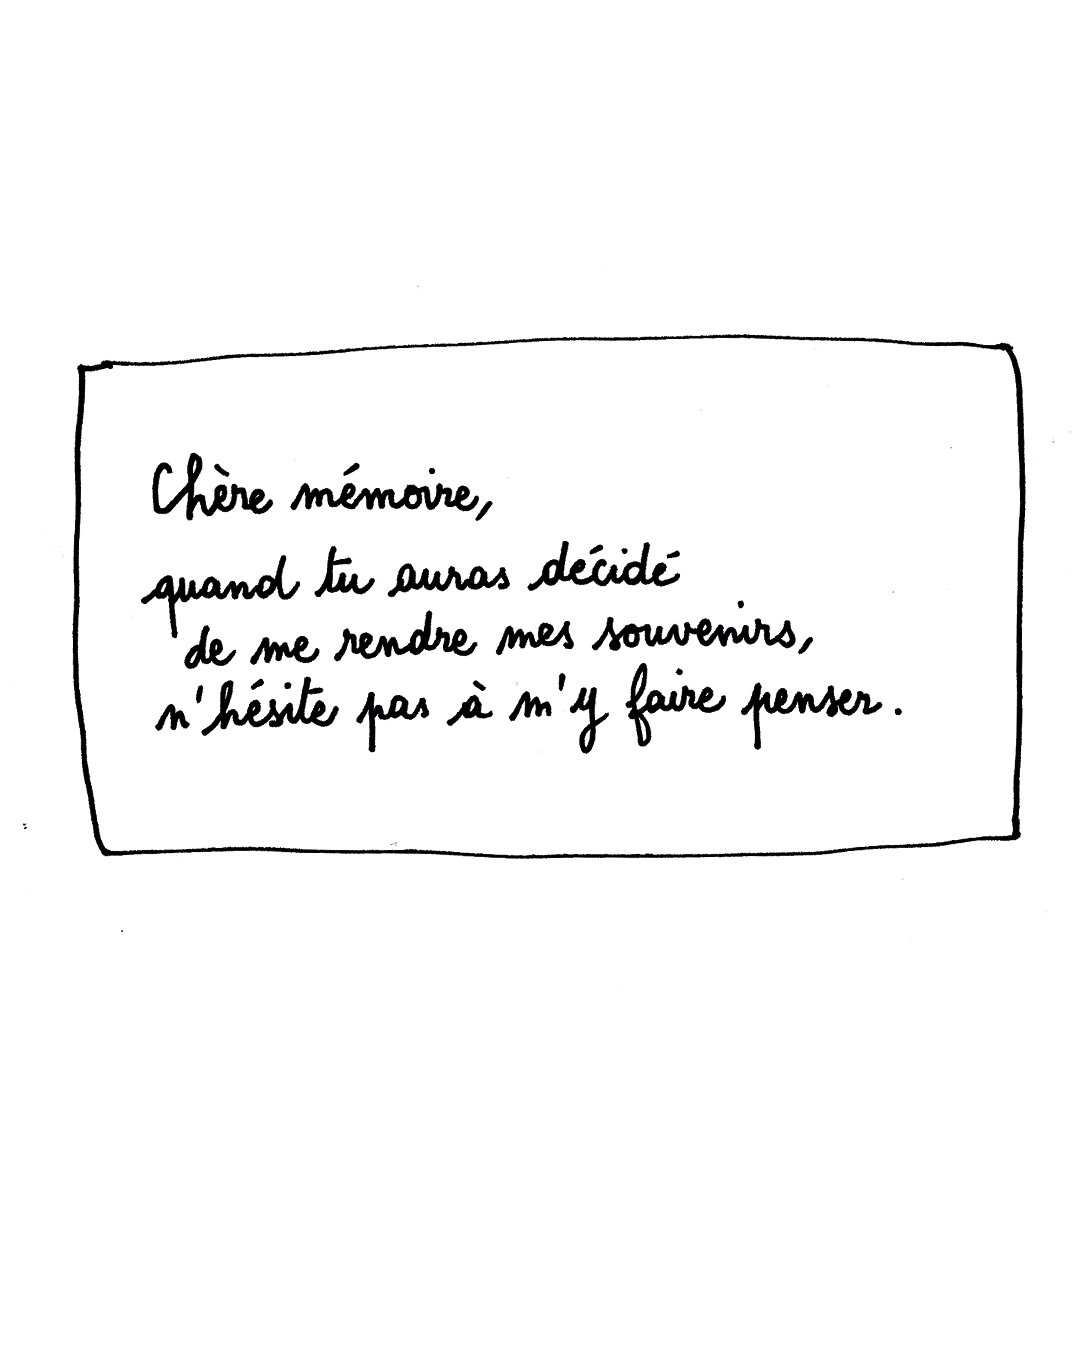 Chère mémoire,
quand tu auras décidé
de me rendre mes souvenirs,
n'hésite pas à m'y faire penser.